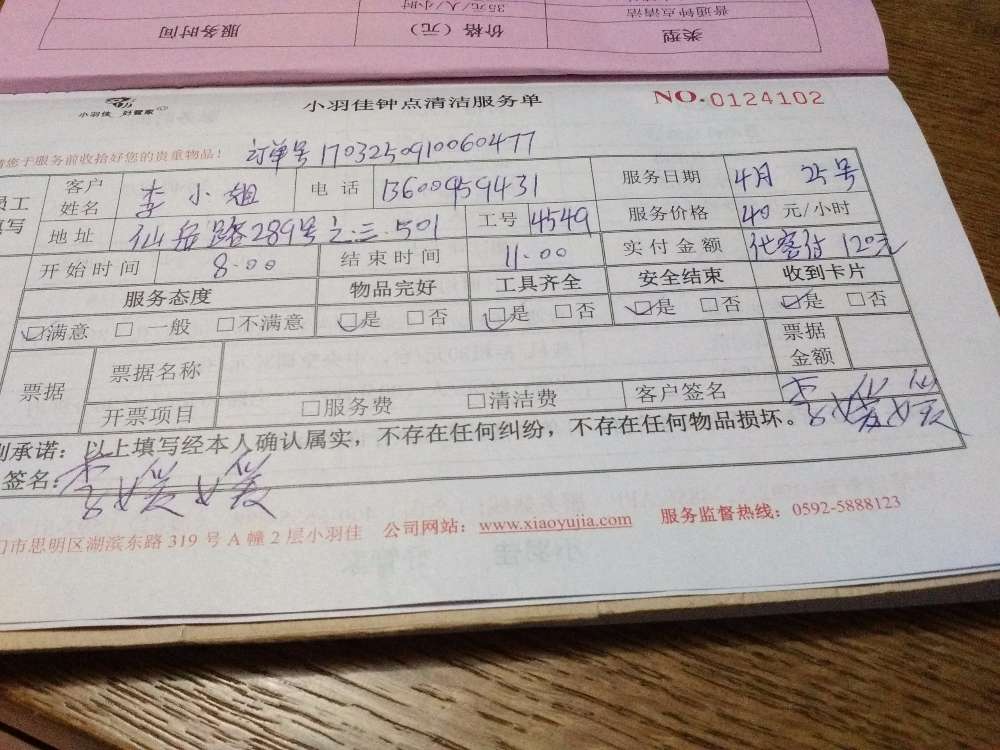 普通钟点清洁 35元/人/小时
类型 价格（元） 服务时间
小羽佳 好管家 小羽佳钟点清洁服务单 NO.0124102
请您于服务前收拾好您的贵重物品！ 订单号 1703250910060477
员工填写 客户姓名 李小姐 电话 13600959431 服务日期 4月 25号
地址 仙岳路289号之三.501 工号 4549 服务价格 40 元/小时
开始时间 8.00 结束时间 11.00 实付金额 代客付 120元
服务态度 物品完好 工具齐全 安全结束 收到卡片
☑满意 □一般 □不满意 ☑是 □否 ☑是 □否 ☑是 □否 ☑是 □否
票据 票据名称 票据金额
开票项目 □服务费 □清洁费 客户签名
承诺：以上填写经本人确认属实，不存在任何纠纷，不存在任何物品损坏。
签名：
门市思明区湖滨东路 319 号 A 幢 2 层小羽佳 公司网站：www.xiaoyujia.com 服务监督热线：0592-5888123